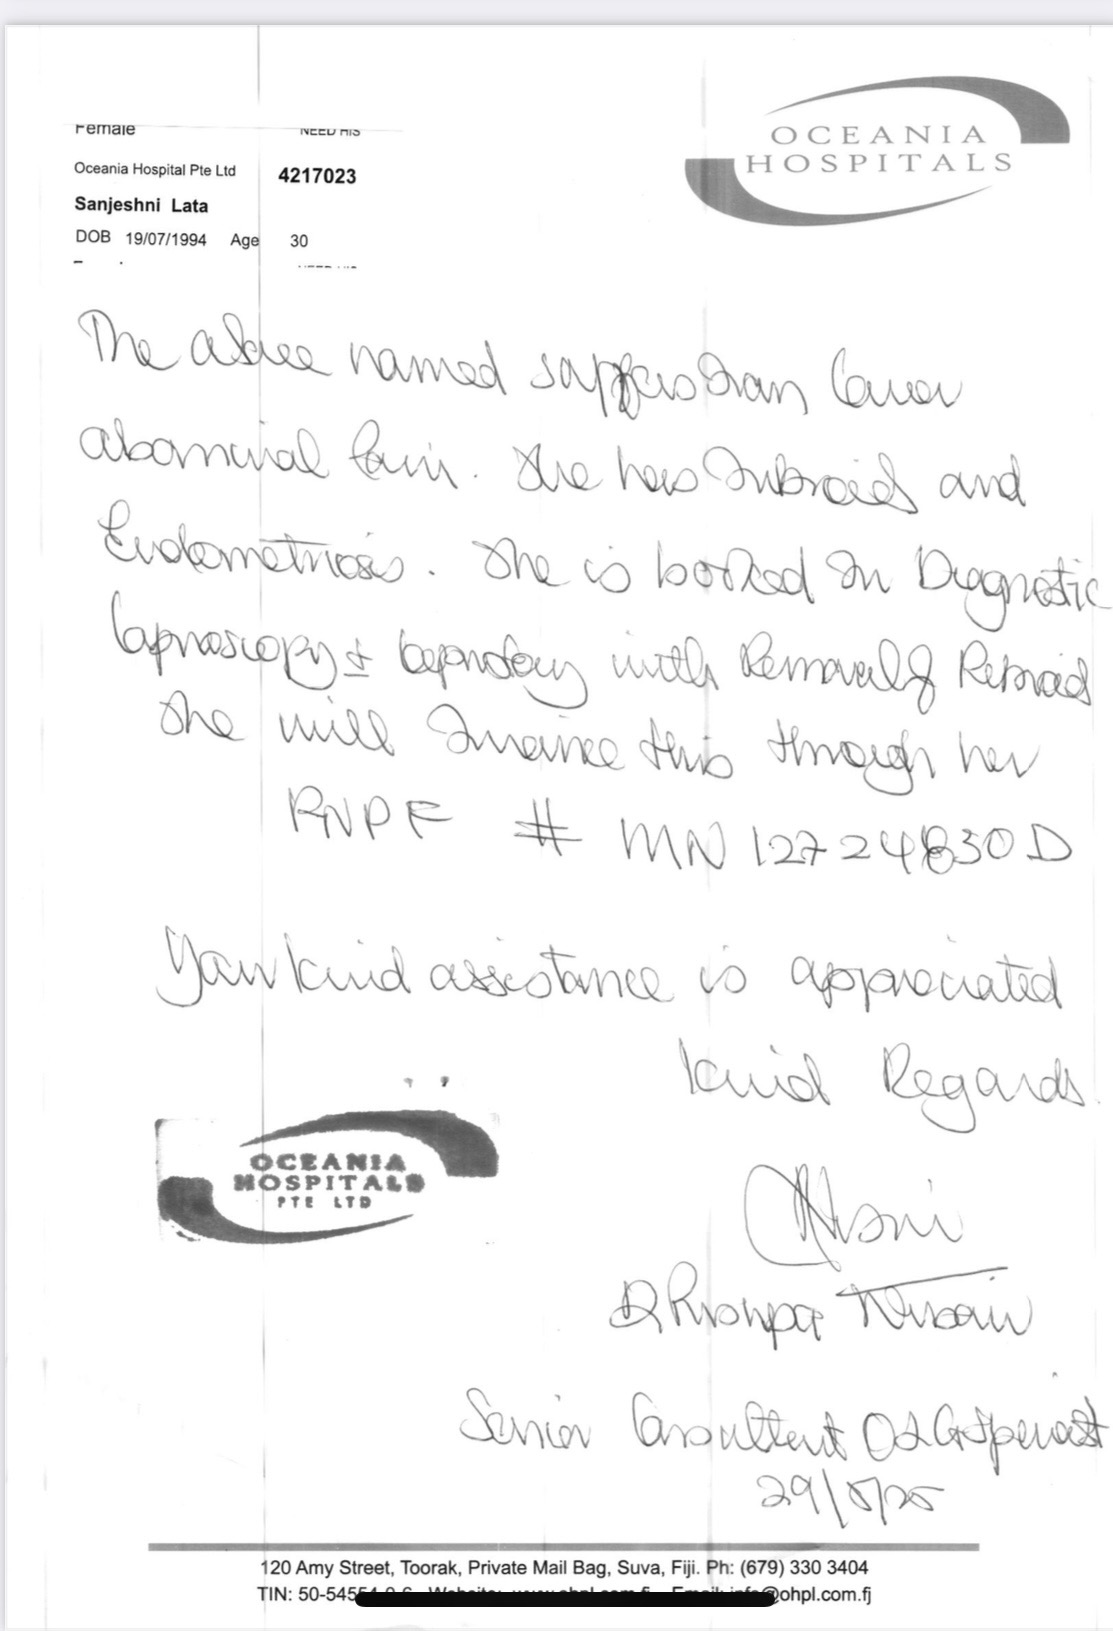 Female NEED HIS
OCEANIA
HOSPITALS
Oceania Hospital Pte Ltd 4217023
Sanjeshni Lata
DOB 19/07/1994 Age 30
The above named suffers from lower
abdominal pain. She has fibroid and
Endometriosis. She is booked for Diagnostic
laparoscopy ± laparotomy with Removal of Fibroid
She will finance this through her
FNPF # MN 12724830D
Your kind assistance is appreciated
Kind Regards.
OCEANIA
HOSPITALS
PTE LTD
Dr
Senior Consultant O&G Specialist
29/5/25
120 Amy Street, Toorak, Private Mail Bag, Suva, Fiji. Ph: (679) 330 3404
TIN: 50-545 @ohpl.com.fj